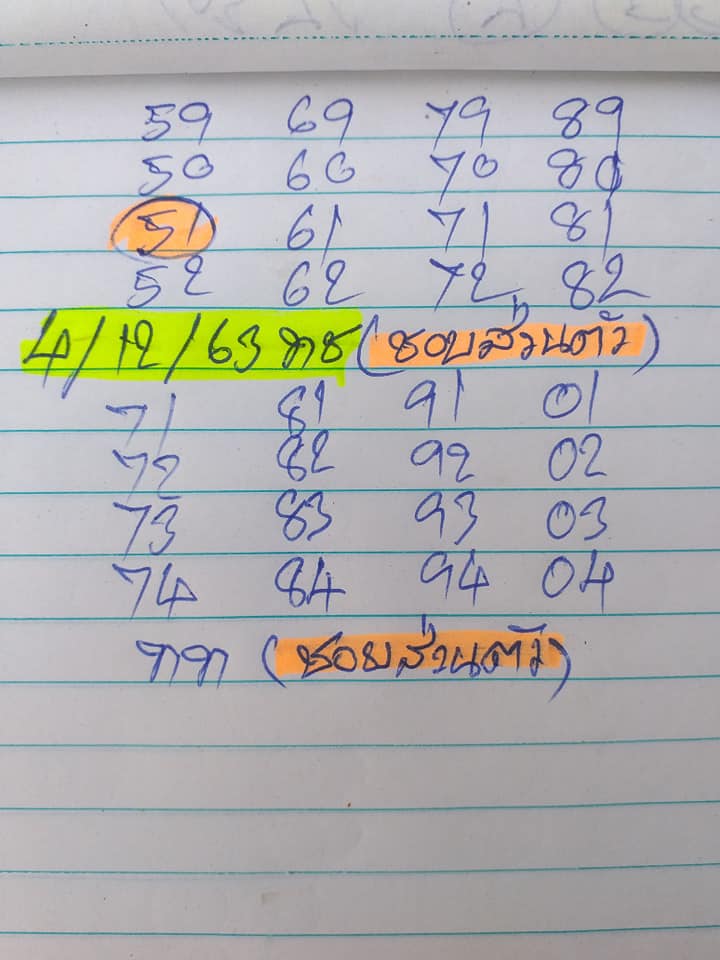 59 69 79 89
50 60 70 80
51 61 71 81
52 62 72 82
4/12/63 ทช (ชอบส่วนตัว)
71 81 91 01
72 82 92 02
73 83 93 03
74 84 94 04
(ชอบส่วนตัว)